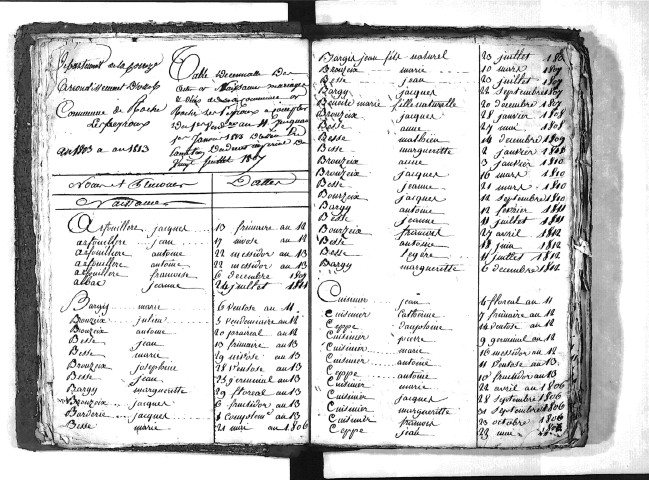 Département de la Corrèze
Arrondissement
Commune de Roche
Lepeyroux
an 1803 a an 1813
Table Decennalle De
Noms et Prenoms Dattes
Naissances
arfouillere jacques 13 frimaire an 12
arfouillere jean 17 nivose an 12
arfouillere antoine 22 messidor an 12
arfouillere antoine 22 messidor an 12
arfouillere francoise 6 decembre 1809
albar jeanne 24 juillet 1811
Bargy marie 6 Ventose an 11
Brouzeix julien 5 vendemiaire an 12
Brouzeix antoine 20 prairial an 12
Besse jean 13 frimaire an 13
Besse marie 29 nivôse an 13
Brouzeix josephine 28 Ventose an 13
Besse jean 23 germinal an 13
Bargy margueritte 29 floreal an 13
Brouzeix jacques 6 fructidor an 13
Barderie jacques 1 Complem.re an 13
Besse marie 21 mai an 1806
Bargis jean fils naturel 23 juillet 180
Brouzeix marie 10 mars 1807
Besse jean 23 juillet 1807
Bargy jacques 22 septembre 1807
marie fille naturelle 20 decembre 1807
Brouzeix jacques 28 janvier 1808
Besse anne 27 mai 1808
Besse mathieu 14 decembre 1809
Besse marguerette 2 janvier 1810
Brouzeix anne 3 janvier 1810
Brouzeix jacques 16 mars 1810
Besse jeanne 21 mars 1810
Brouzeix jacques 12 septembre 1810
Bargy antoine 12 fevrier 1811
Besse jeanne 11 juillet 1811
Brouzeix francois 27 avril 1812
Besse antoine 18 juin 1812
Besse legere 11 juillet 1812
Bargy marguerette 6 decembre 1812
Cuisinier jean 4 floreal an 11
Cuisinier Catherine 7 frimaire an 12
Ceppe 14 Ventose an 12
Cuisinier pierre 9 germinal an 12
Cuisinier marie 16 messidor an 12
Cuisinier antoine 11 Ventose an 13
Ceppe antoine 10 fructidor an 13
Cuisinier marie 22 avril an 1806
Cuisinier jacques 28 septembre 1806
Cuisinier marguerette 21 septembre 1806
Cuisinier francois 23 octobre 1806
Ceppe jean 23 mai